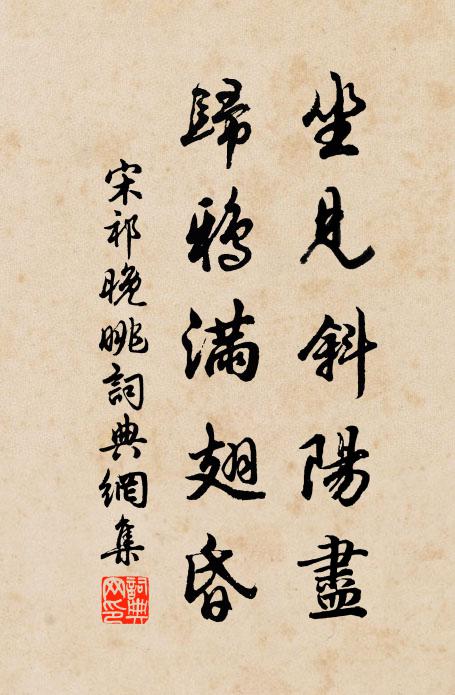 坐見斜陽盡
歸鴉滿翅昏
宋祁晚眺詞典網集
詞典網印